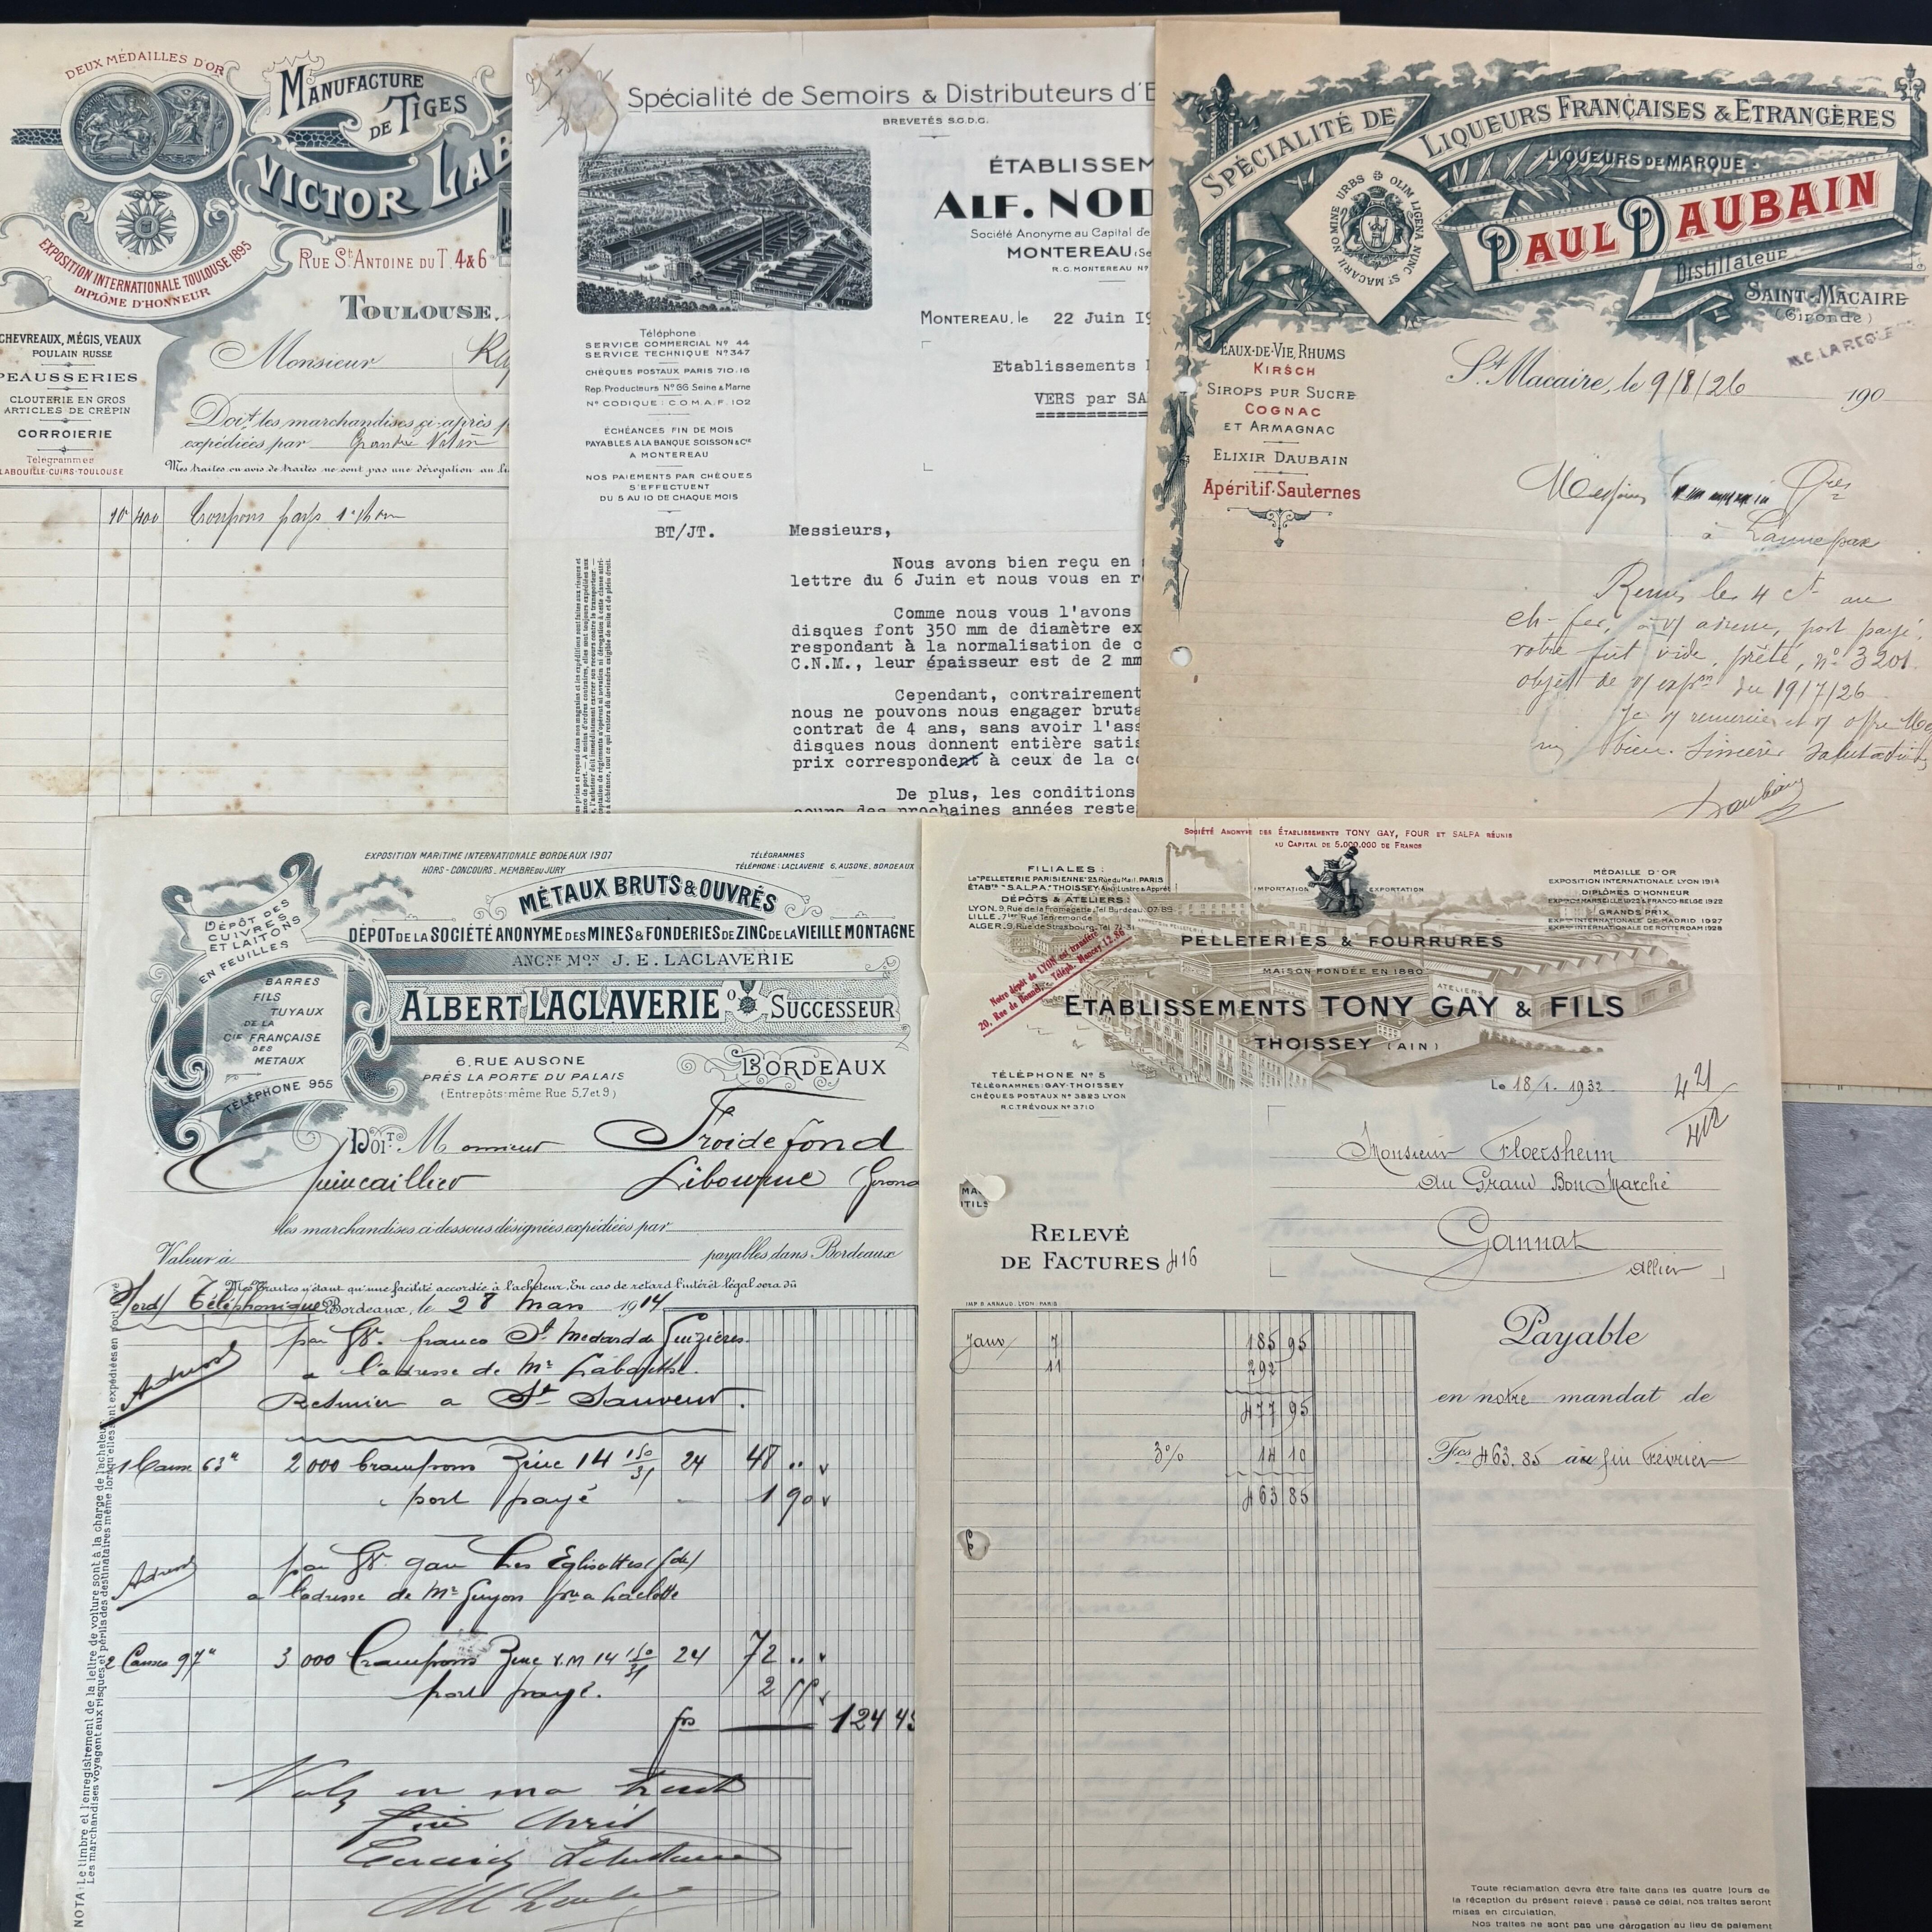 DEUX MÉDAILLES D'OR
MANUFACTURE
DE TIGES
VICTOR LAB
EXPOSITION INTERNATIONALE TOULOUSE 1895
DIPLÔME D'HONNEUR
RUE ST ANTOINE DU T. 4&6
TOULOUSE,
CHEVREAUX, MÉGIS, VEAUX
POULAIN RUSSE
PEAUSSERIES
CLOUTERIE EN GROS
ARTICLES DE CRÉPIN
CORROIERIE
Télégrammes
LABOUILLE-CUIRS-TOULOUSE
Monsieur
Doit les marchandises ci-après
expédiées par Grande Vitesse
Mes traites ou avis de traites ne sont pas une dérogation au
10 400 Croupons
Spécialité de Semoirs & Distributeurs d'E
BREVETÉS S.G.D.G.
ÉTABLISSEM
ALF. NOD
Société Anonyme au Capital de
MONTEREAU (Se
R.C. MONTEREAU Nº
MONTEREAU, le 22 Juin 19
Téléphone
SERVICE COMMERCIAL Nº 44
SERVICE TECHNIQUE Nº 347
CHÈQUES POSTAUX PARIS 710.16
Rep. Producteurs Nº 66 Seine & Marne
Nº CODIQUE: C.O.M.A.F. 102
ÉCHÉANCES FIN DE MOIS
PAYABLES A LA BANQUE SOISSON & Cie
A MONTEREAU
NOS PAIEMENTS PAR CHÈQUES
S'EFFECTUENT
DU 5 AU 10 DE CHAQUE MOIS
Etablissements
VERS par SA
BT/JT.
Messieurs,
Nous avons bien reçu en
lettre du 6 Juin et nous vous en r
Comme nous vous l'avons
disques font 350 mm de diamètre ex
respondant à la normalisation de c
C.N.M., leur épaisseur est de 2 mm
Cependant, contrairement
nous ne pouvons nous engager bruta
contrat de 4 ans, sans avoir l'ass
disques nous donnent entière satis
prix correspondent à ceux de la co
De plus, les conditions
cours des prochaines années reste
SPÉCIALITÉ DE
LIQUEURS FRANÇAISES & ETRANGÈRES
LIQUEURS DE MARQUE
PAUL DAUBAIN
Distillateur
SAINT-MACAIRE
(Gironde)
NOMINE URBS OLIM LIGENA NUNC ST MACARII
EAUX-DE-VIE, RHUMS
KIRSCH
SIROPS PUR SUCRE
COGNAC
ET ARMAGNAC
ELIXIR DAUBAIN
Apéritif-Sauternes
St Macaire, le 9/8/26 190
Messieurs
à Lannepax
Remis le 4 ct au
ch-fer, port payé,
votre fût vide, prêté, nº 3201.
objet de du 19/7/26
Je vs remercie et vs offre
Daubain
EXPOSITION MARITIME INTERNATIONALE BORDEAUX 1907
HORS-CONCOURS. MEMBRE DU JURY
TÉLÉGRAMMES
TÉLÉPHONE: LACLAVERIE 6, AUSONE, BORDEAUX
MÉTAUX BRUTS & OUVRÉS
DÉPOT DE LA SOCIÉTÉ ANONYME DES MINES & FONDERIES DE ZINC DE LA VIEILLE MONTAGNE
ANCNE MON J. E. LACLAVERIE
ALBERT LACLAVERIE SUCCESSEUR
DÉPOT DES
CUIVRES
ET LAITONS
EN FEUILLES
BARRES
FILS
TUYAUX
DE LA
CIE FRANÇAISE
DES
METAUX
TÉLÉPHONE 955
6, RUE AUSONE
PRÈS LA PORTE DU PALAIS
(Entrepôts même Rue 5, 7 et 9)
BORDEAUX
DOIT Monsieur Froidefond
Quincaillier Libourne
les marchandises ci-dessous désignées expédiées par
Valeur à payables dans Bordeaux
Mes Traites n'étant qu'une facilité accordée à l'acheteur. En cas de retard l'intérêt légal sera dû
Téléphonique Bordeaux, le 28 Mars 1914
par franco St Médard de Guizières
à l'adresse de Mr
à St Sauveur.
1 Caisse 63k 2000 Crampons Zinc 14 24 48
port payé 1 90
par gare Les Eglisottes
a l'adresse de Mr Guyon
2 Caisses 97k 3000 Crampons Zinc V.M 14 24 72
port payé. 2 55
frs 124 45
fin Avril
NOTA: Le timbre et l'enregistrement de la lettre de voiture sont à la charge de l'acheteur
Les marchandises voyagent aux risques et périls des destinataires même lorsqu'elles sont expédiées en port payé
SOCIÉTÉ ANONYME DES ÉTABLISSEMENTS TONY GAY, FOUR ET SALPA RÉUNIS
AU CAPITAL DE 5.000.000 DE FRANCS
FILIALES:
La "PELLETERIE PARISIENNE" 25 Rue du Mail, PARIS
ÉTABTS "S.A.L.P.A." THOISSEY (Ain) Lustre & Apprêt
DÉPÔTS & ATELIERS:
LYON, 9, Rue de la Fromagerie, Tel. Burdeau: 07-89
LILLE, 7ter Rue Tenremonde
ALGER, 9, Rue de Strasbourg, Tel. 71-31
IMPORTATION EXPORTATION
MÉDAILLE D'OR
EXPOSITION INTERNATIONALE LYON 1914
DIPLÔMES D'HONNEUR
EXPONS MARSEILLE 1922 & FRANCO-BELGE 1922
GRANDS PRIX
EXPON INTERNATIONALE DE MADRID 1927
EXPON INTERNATIONALE DE ROTTERDAM 1928
PELLETERIES & FOURRURES
MAISON FONDÉE EN 1880
ATELIERS
Notre dépôt de LYON est transféré
20, Rue de Bonnel, Téléph. Moncey 12.86
ETABLISSEMENTS TONY GAY & FILS
THOISSEY (AIN)
TÉLÉPHONE Nº 5
TÉLÉGRAMMES: GAY-THOISSEY
CHÈQUES POSTAUX Nº 3823 LYON
R.C. TRÉVOUX Nº 3710
Le 18/1. 1932
421
412
Monsieur Floersheim
Au Grand Bon Marché
Gannat
Allier
RELEVÉ
DE FACTURES 416
IMP. B. ARNAUD, LYON-PARIS
Janv 7 185 95
11 292
477 95
3% 14 10
463 85
Payable
en notre mandat de
Fcs 463.85 au fin Février
Toute réclamation devra être faite dans les quatre jours de
la réception du présent relevé; passé ce délai, nos traites seront
mises en circulation.
Nos traites ne sont pas une dérogation au lieu de paiement